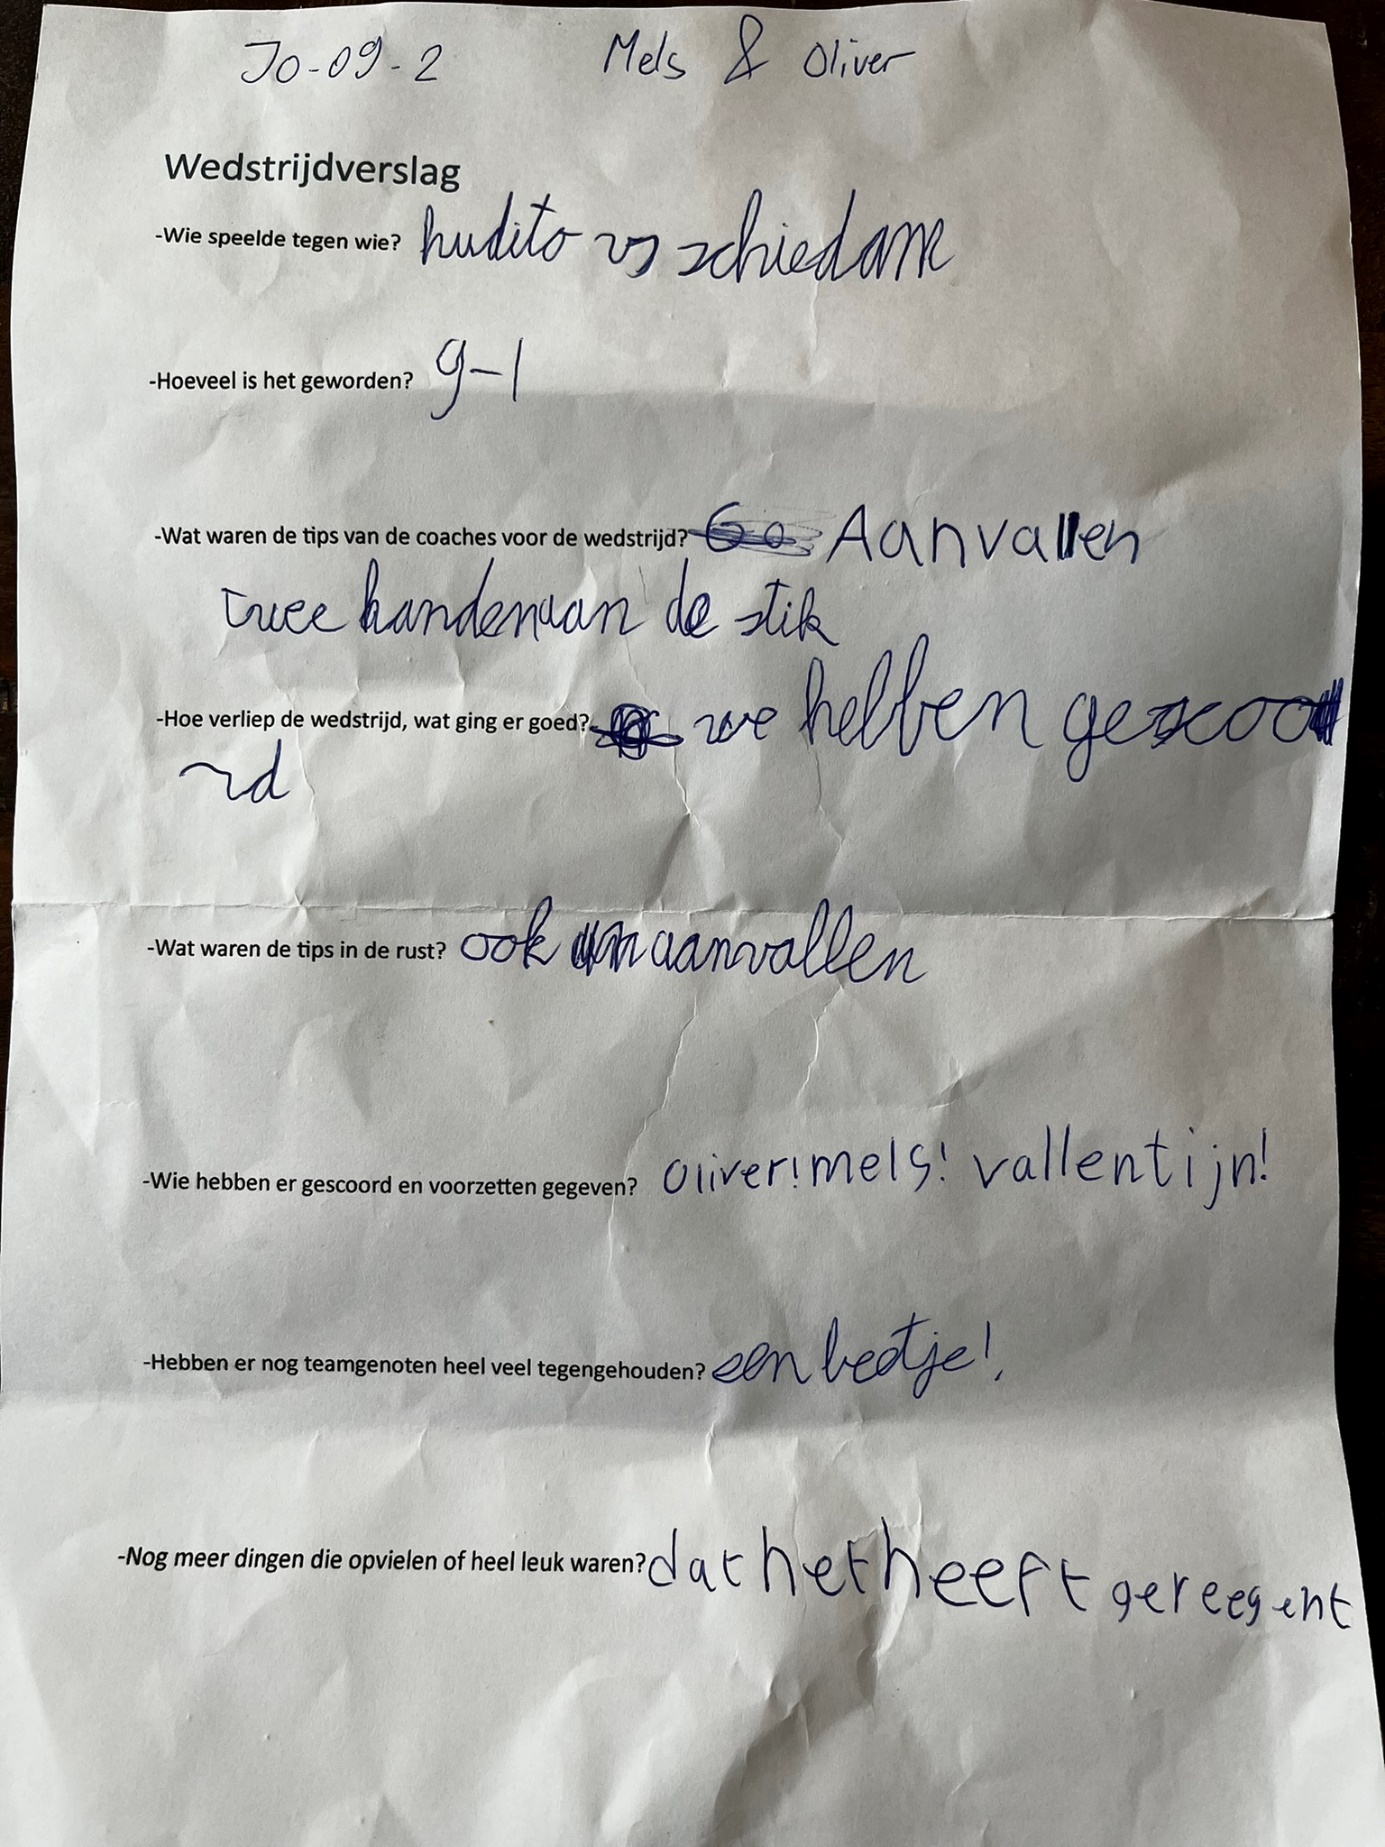 Jo-09-2 Mels & Oliver
Wedstrijdverslag
-Wie speelde tegen wie? hudito vs schiedam
-Hoeveel is het geworden? 9-1
-Wat waren de tips van de coaches voor de wedstrijd? Aanvallen
twee handen aan de stik
-Hoe verliep de wedstrijd, wat ging er goed? we hebben gescoo
rd
-Wat waren de tips in de rust? ook aanvallen
-Wie hebben er gescoord en voorzetten gegeven? Oliver! mels! vallentijn!
-Hebben er nog teamgenoten heel veel tegengehouden? een beetje!
-Nog meer dingen die opvielen of heel leuk waren? dat het heeft gereegent